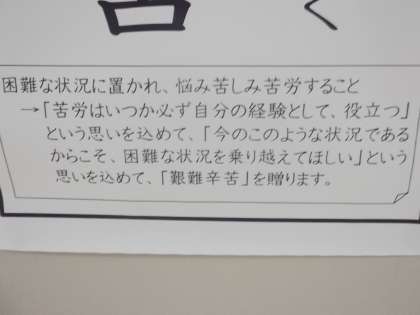 く
困難な状況に置かれ、悩み苦しみ苦労すること
→「苦労はいつか必ず自分の経験として、役立つ」
という思いを込めて、「今のこのような状況である
からこそ、困難な状況を乗り越えてほしい」という
思いを込めて、「艱難辛苦」を贈ります。